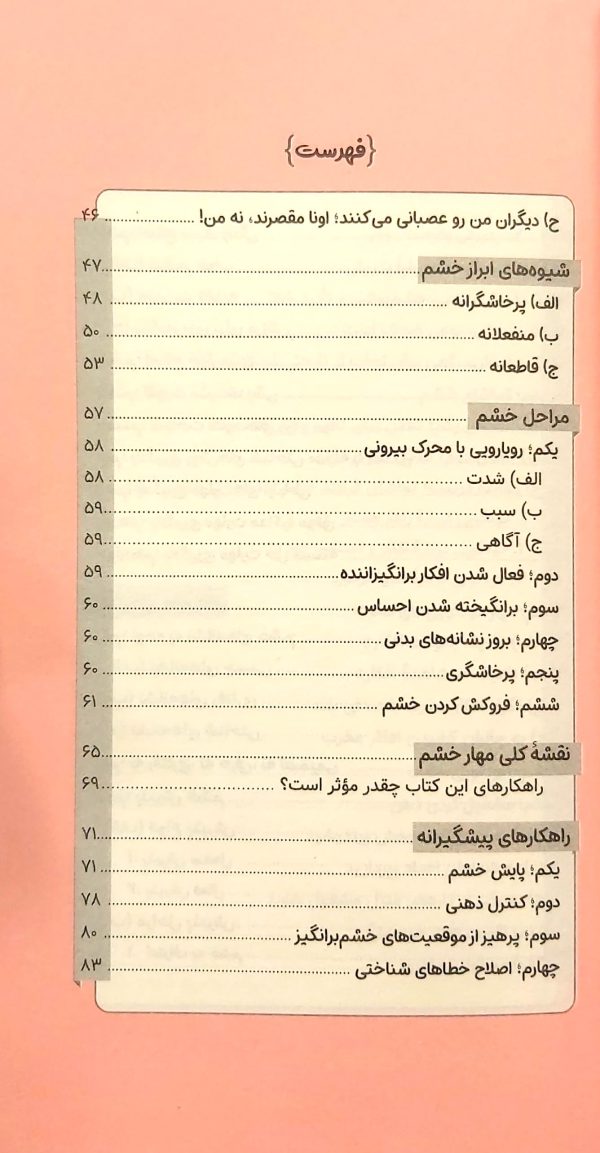 {فهرست}
ح) دیگران من رو عصبانی می‌کنند؛ اونا مقصرند، نه من! ۴۶
شیوه‌های ابراز خشم ۴۷
الف) پرخاشگرانه ۴۸
ب) منفعلانه ۵۰
ج) قاطعانه ۵۳
مراحل خشم ۵۷
یکم؛ رویارویی با محرک بیرونی ۵۸
الف) شدت ۵۸
ب) سبب ۵۹
ج) آگاهی ۵۹
دوم؛ فعال شدن افکار برانگیزاننده ۵۹
سوم؛ برانگیخته شدن احساس ۶۰
چهارم؛ بروز نشانه‌های بدنی ۶۰
پنجم؛ پرخاشگری ۶۰
ششم؛ فروکش کردن خشم ۶۱
نقشهٔ کلی مهار خشم ۶۵
راهکارهای این کتاب چقدر مؤثر است؟ ۶۹
راهکارهای پیشگیرانه ۷۱
یکم؛ پایش خشم ۷۱
دوم؛ کنترل ذهنی ۷۸
سوم؛ پرهیز از موقعیت‌های خشم‌برانگیز ۸۰
چهارم؛ اصلاح خطاهای شناختی ۸۳